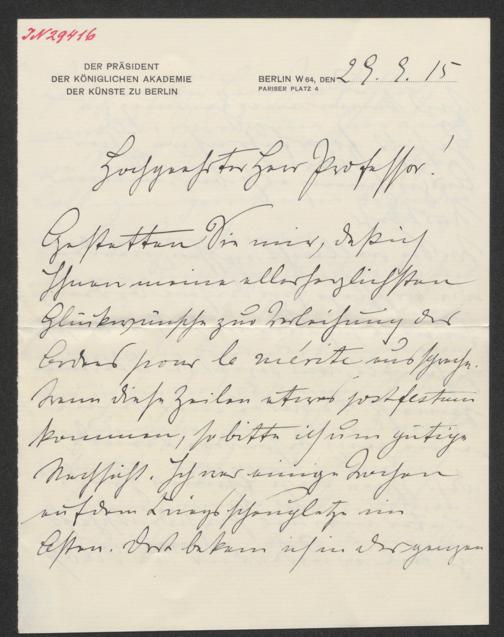 JN 29416
DER PRÄSIDENT
DER KÖNIGLICHEN AKADEMIE
DER KÜNSTE ZU BERLIN
BERLIN W 64, DEN 29. 9. 15
PARISER PLATZ 4
Hochgeehrter Herr Professor!
Gestatten Sie mir, daß ich
Ihnen meine allerherzlichsten
Glückwünsche zur Verleihung des
Ordens pour le mérite ausspreche.
Wenn diese Zeilen etwas post festum
kommen, so bitte ich um gütige
Nachsicht. Ich war einige Wochen
auf dem Kriegsschauplatze im
Osten. Dort bekam ich in der ganzen